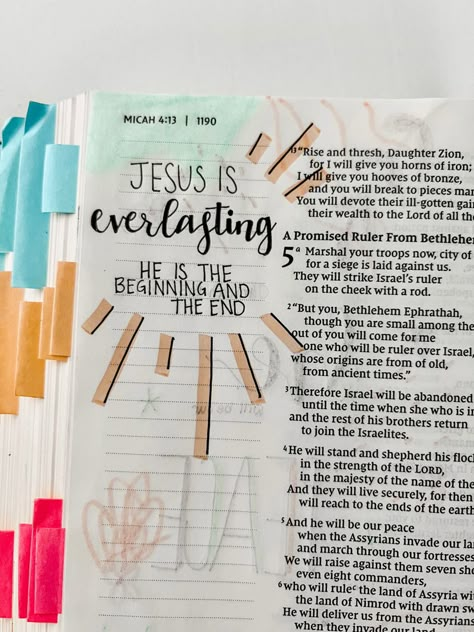 MICAH 4:13 | 1190
JESUS IS
everlasting
HE IS THE
BEGINNING AND
THE END
13 "Rise and thresh, Daughter Zion,
for I will give you horns of iron;
I will give you hooves of bronze,
and you will break to pieces man
You will devote their ill-gotten gain
their wealth to the Lord of all the
A Promised Ruler From Bethlehem
5 a Marshal your troops now, city of
for a siege is laid against us.
They will strike Israel's ruler
on the cheek with a rod.
2 "But you, Bethlehem Ephrathah,
though you are small among the
out of you will come for me
one who will be ruler over Israel,
whose origins are from of old,
from ancient times."
3 Therefore Israel will be abandoned
until the time when she who is in
and the rest of his brothers return
to join the Israelites.
4 He will stand and shepherd his floc
in the strength of the LORD,
in the majesty of the name of the
And they will live securely, for then
will reach to the ends of the earth
5 And he will be our peace
when the Assyrians invade our la
and march through our fortresses
We will raise against them seven she
even eight commanders,
6 who will rule c the land of Assyria wi
the land of Nimrod with drawn sw
He will deliver us from the Assyrians
when they invade our land